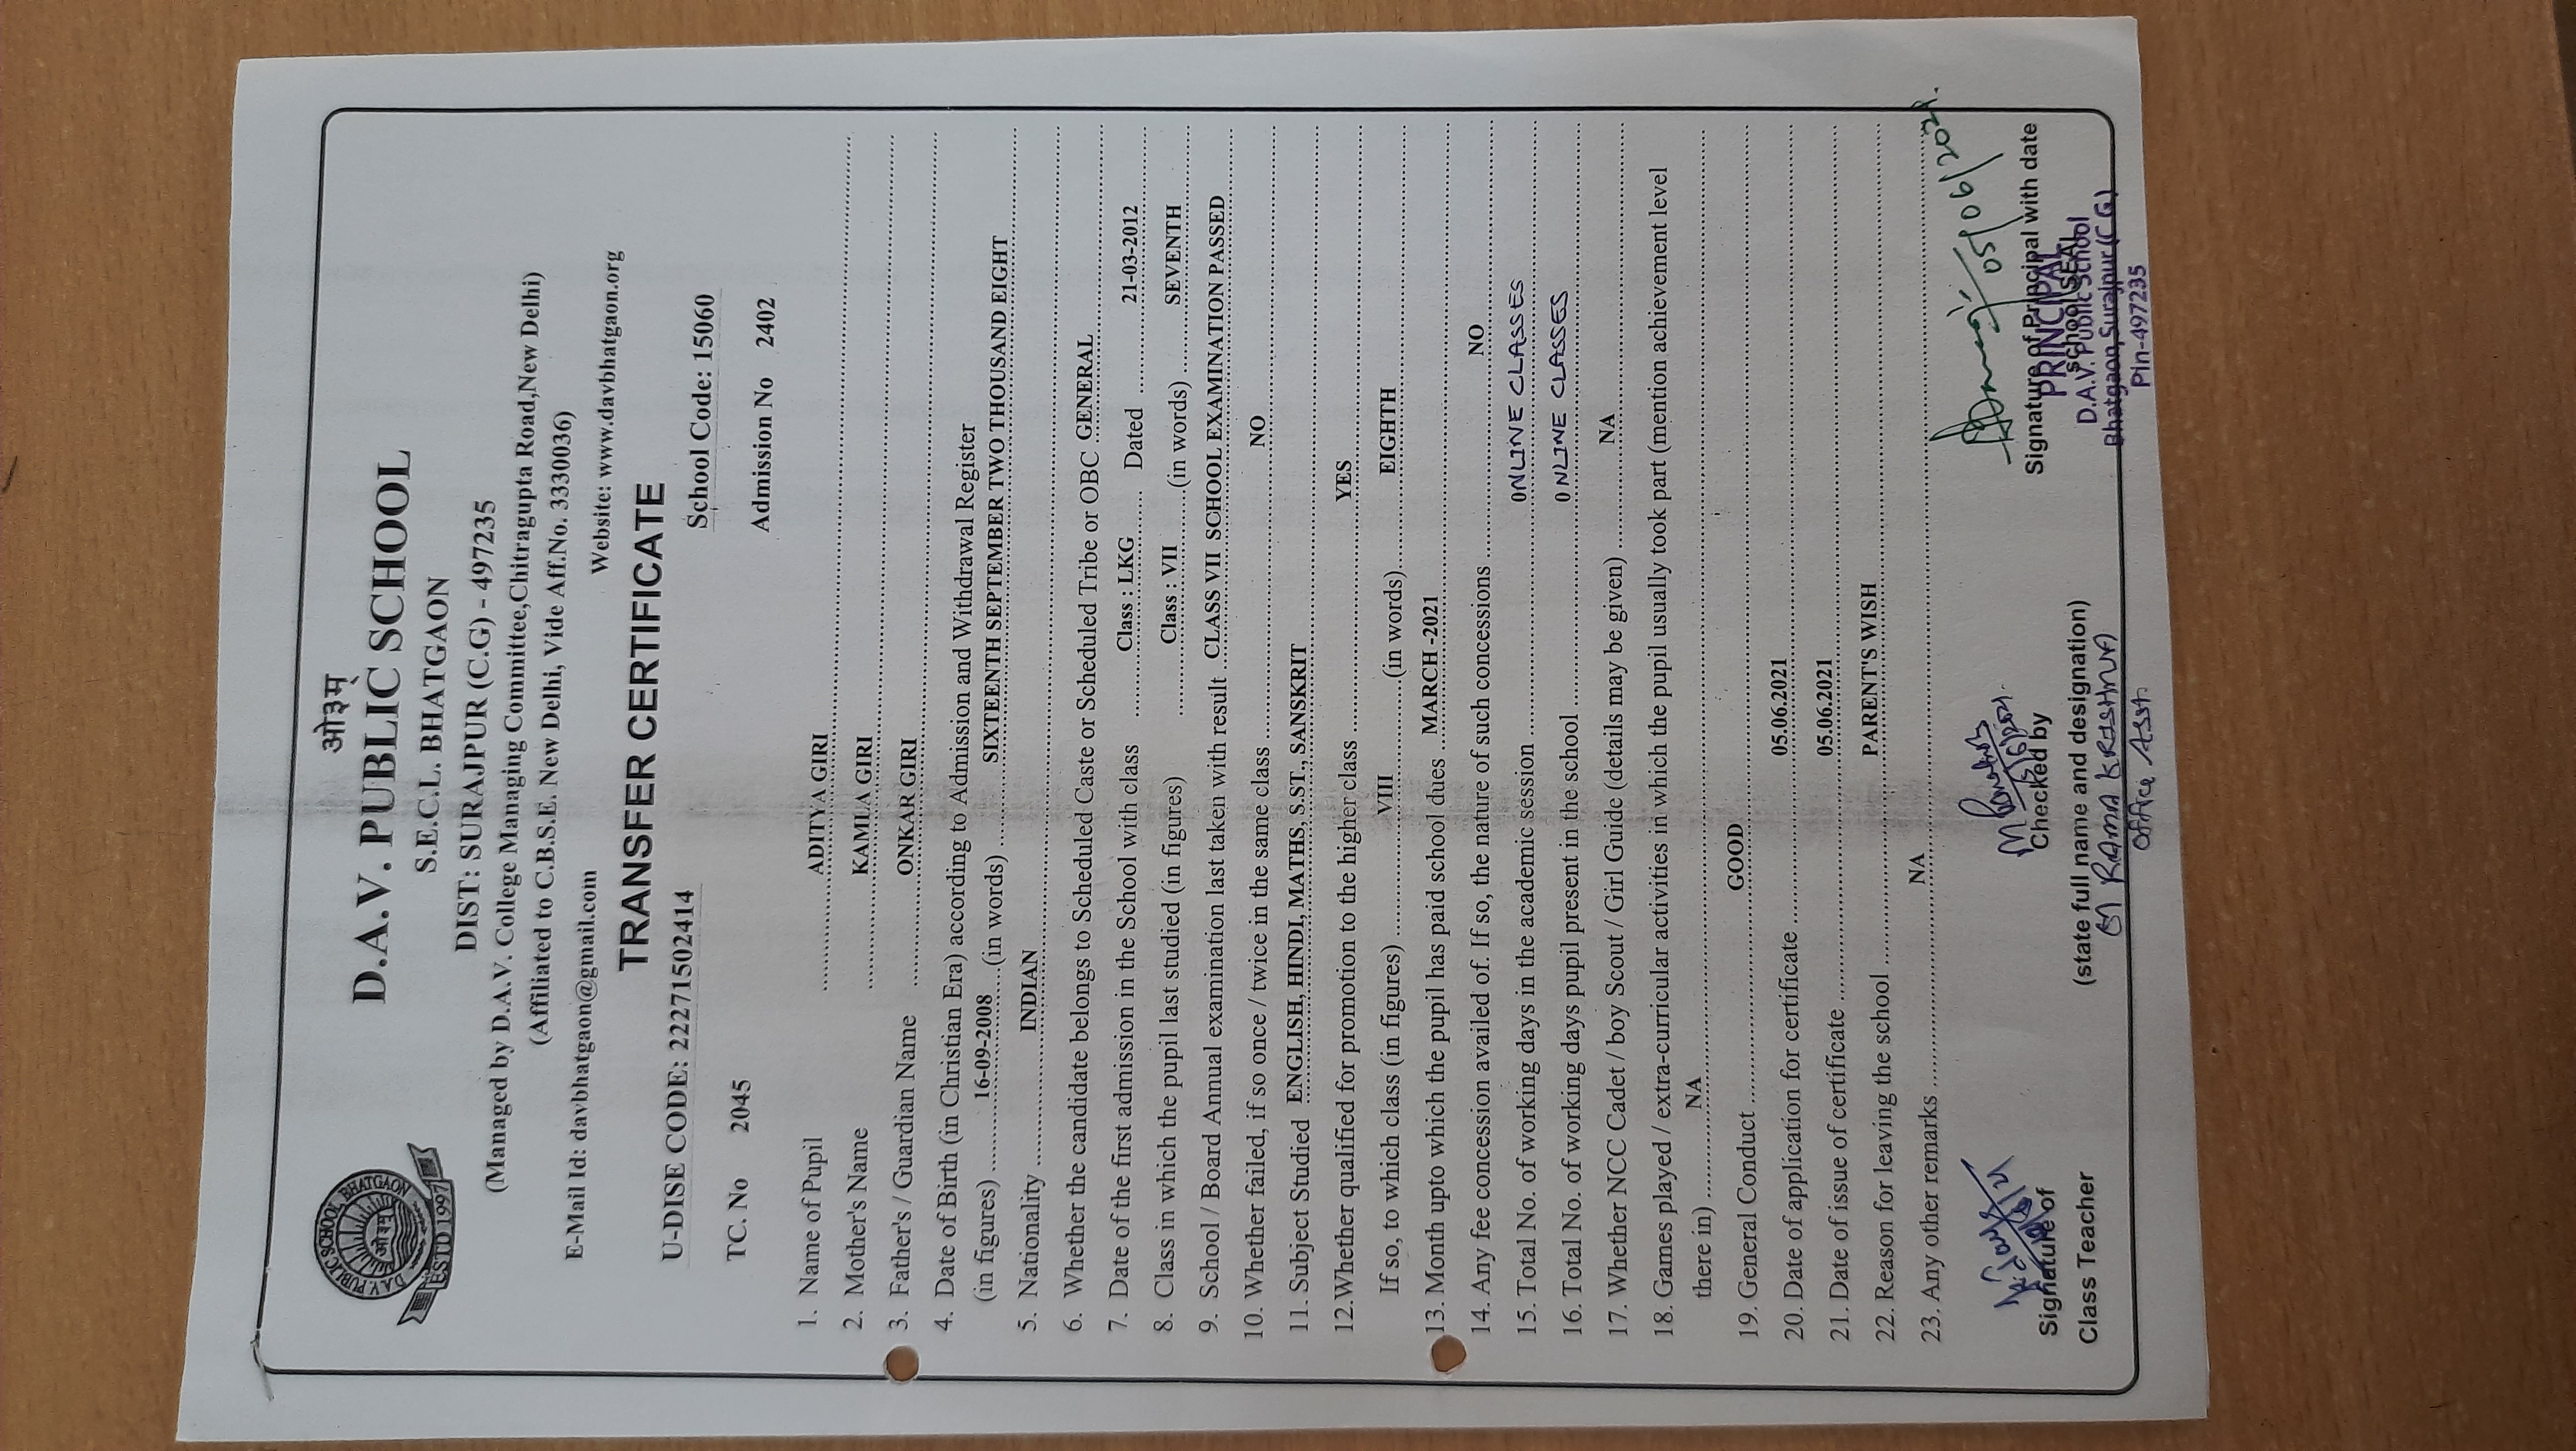 ओ३म्
D.A.V. PUBLIC SCHOOL
S.E.C.L. BHATGAON
DIST: SURAJPUR (C.G) - 497235
(Managed by D.A.V. College Managing Committee,Chitragupta Road,New Delhi)
(Affiliated to C.B.S.E. New Delhi, Vide Aff.No. 3330036)
E-Mail Id: davbhatgaon@gmail.com Website: www.davbhatgaon.org
D.A.V. PUBLIC SCHOOL, BHATGAON
ओ३म्
ESTD 1997
TRANSFER CERTIFICATE
U-DISE CODE: 22271502414 School Code: 15060
TC. No 2045 Admission No 2402
1. Name of Pupil ADITYA GIRI
2. Mother's Name KAMLA GIRI
3. Father's / Guardian Name ONKAR GIRI
4. Date of Birth (in Christian Era) according to Admission and Withdrawal Register
(in figures) 16-09-2008 (in words) SIXTEENTH SEPTEMBER TWO THOUSAND EIGHT
5. Nationality INDIAN
6. Whether the candidate belongs to Scheduled Caste or Scheduled Tribe or OBC GENERAL
7. Date of the first admission in the School with class Class : LKG Dated 21-03-2012
8. Class in which the pupil last studied (in figures) Class : VII (in words) SEVENTH
9. School / Board Annual examination last taken with result CLASS VII SCHOOL EXAMINATION PASSED
10. Whether failed, if so once / twice in the same class NO
11. Subject Studied ENGLISH, HINDI, MATHS, S.ST., SANSKRIT
12.Whether qualified for promotion to the higher class YES
If so, to which class (in figures) VIII (in words) EIGHTH
13. Month upto which the pupil has paid school dues MARCH -2021
14. Any fee concession availed of. If so, the nature of such concessions NO
15. Total No. of working days in the academic session ONLINE CLASSES
16. Total No. of working days pupil present in the school ONLINE CLASSES
17. Whether NCC Cadet / boy Scout / Girl Guide (details may be given) NA
18. Games played / extra-curricular activities in which the pupil usually took part (mention achievement level
there in) NA
19. General Conduct GOOD
20. Date of application for certificate 05.06.2021
21. Date of issue of certificate 05.06.2021
22. Reason for leaving the school PARENT'S WISH
23. Any other remarks NA
05/06/2021
Signature of Checked by Signature of Principal with date
Class Teacher (state full name and designation) School SEAL
RAMA KRISHNA
Office Asst.
PRINCIPAL
D.A.V. Public School
Bhatgaon, Surajpur (C.G)
Pin-497235